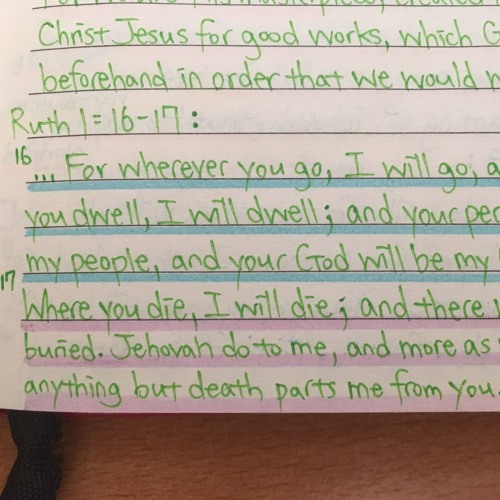 Christ Jesus for good works, which G
beforehand in order that we would
Ruth 1=16-17:
16 ... For wherever you go, I will go, a
you dwell, I will dwell; and your peo
my people, and your God will be my
17 Where you die, I will die; and there
buried. Jehovah do to me, and more as
anything but death parts me from you.